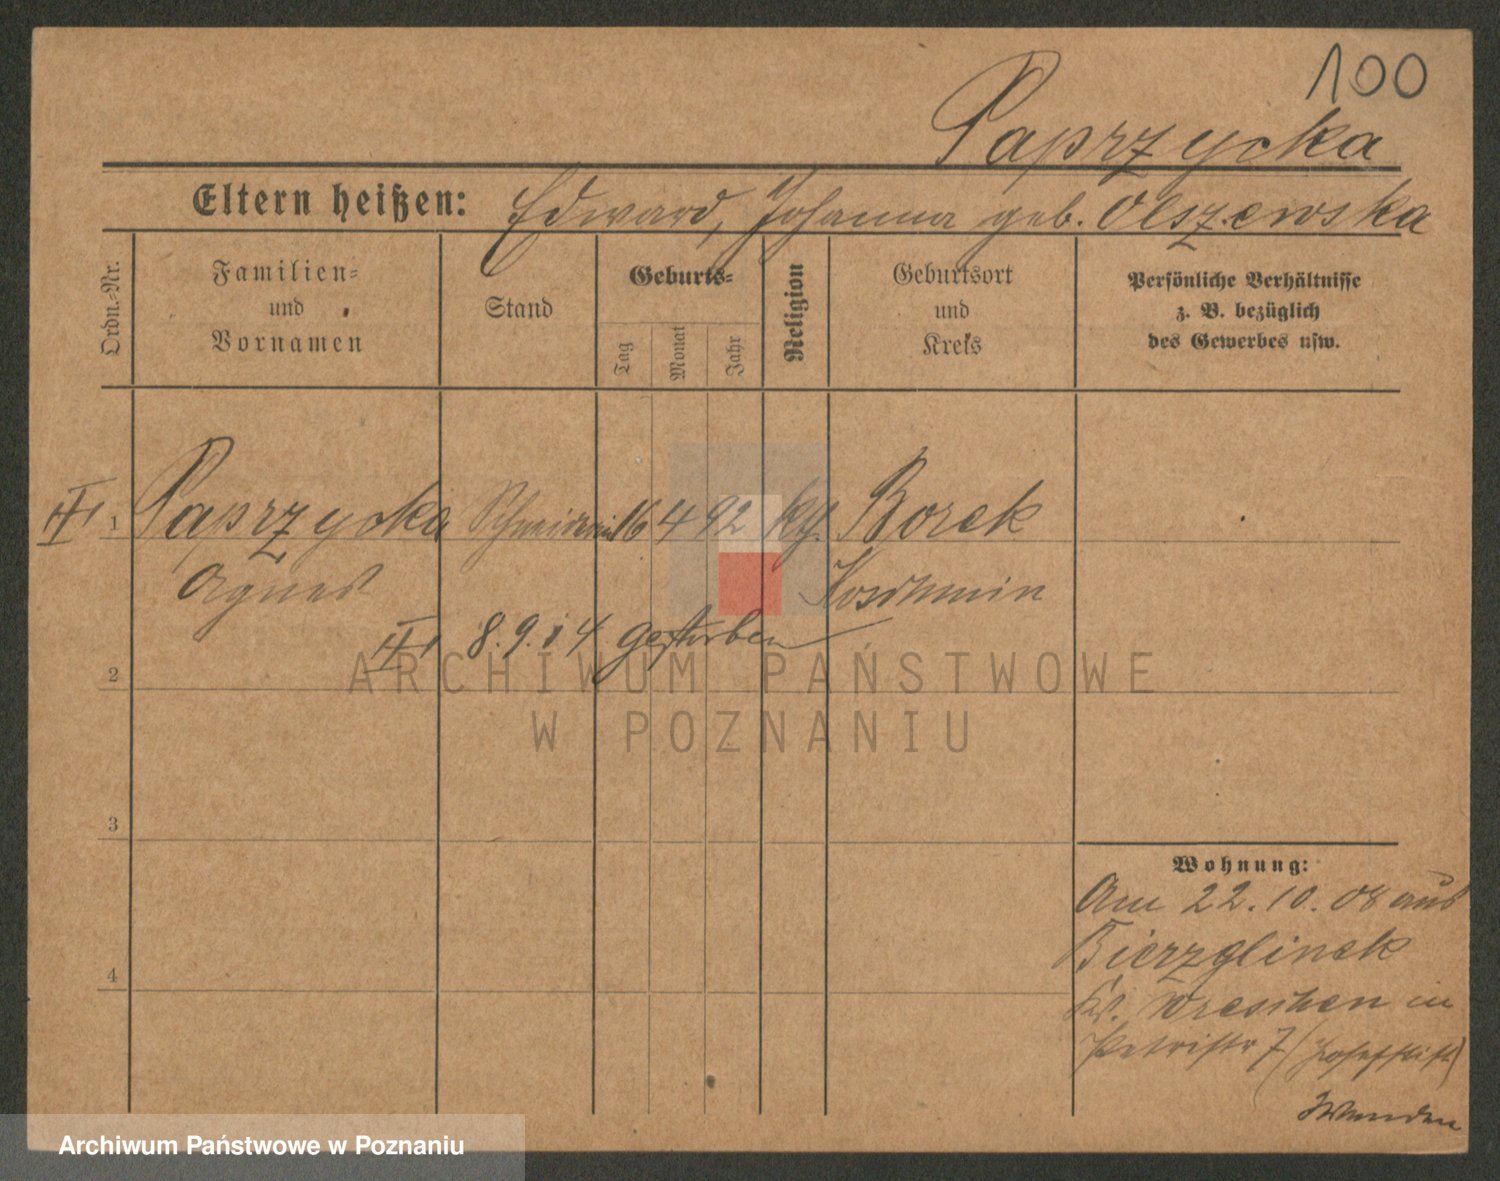 100
Paprzycka
Eltern heißen: Edward, Johanna geb. Olszewska
Ordn.-Nr.
Familien- und Vornamen
Stand
Geburts-
Tag
Monat
Jahr
Religion
Geburtsort und Kreis
Persönliche Verhältnisse z. B. bezüglich des Gewerbes usw.
1 Paprzycka Schneiderin 16 4 92 Borek
Agnes Koschmin
8.9.14 gestorben
2
3
4
Wohnung:
Am 22.10.08 aus
Bierzglinek
Kr. Wreschen in
Petristr 7 (Josefstift)
ARCHIWUM PAŃSTWOWE
W POZNANIU
Archiwum Państwowe w Poznaniu